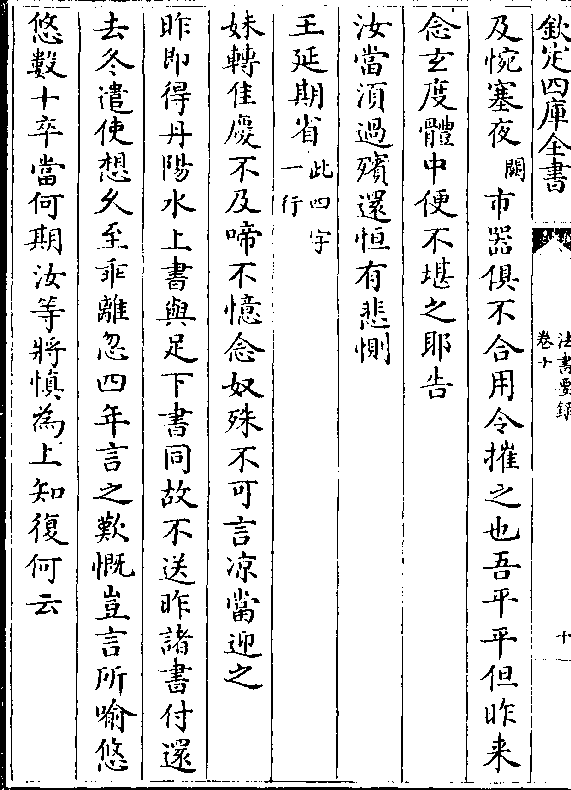 欽定四庫全書
法書要錄
卷十
十
及惋塞夜闕市器俱不合用令摧之也吾平平但昨来
念玄度體中便不堪之耶告
汝當須過殯還恒有悲惻
王延期省此四字一行
妹轉佳慶不及啼不憶念奴殊不可言凉當迎之
昨即得丹陽水上書與足下書同故不送昨諸書付還
去冬遣使想久至乖離忽四年言之歎慨豈言所喻悠
悠數十卒當何期汝等將慎為上知復何云